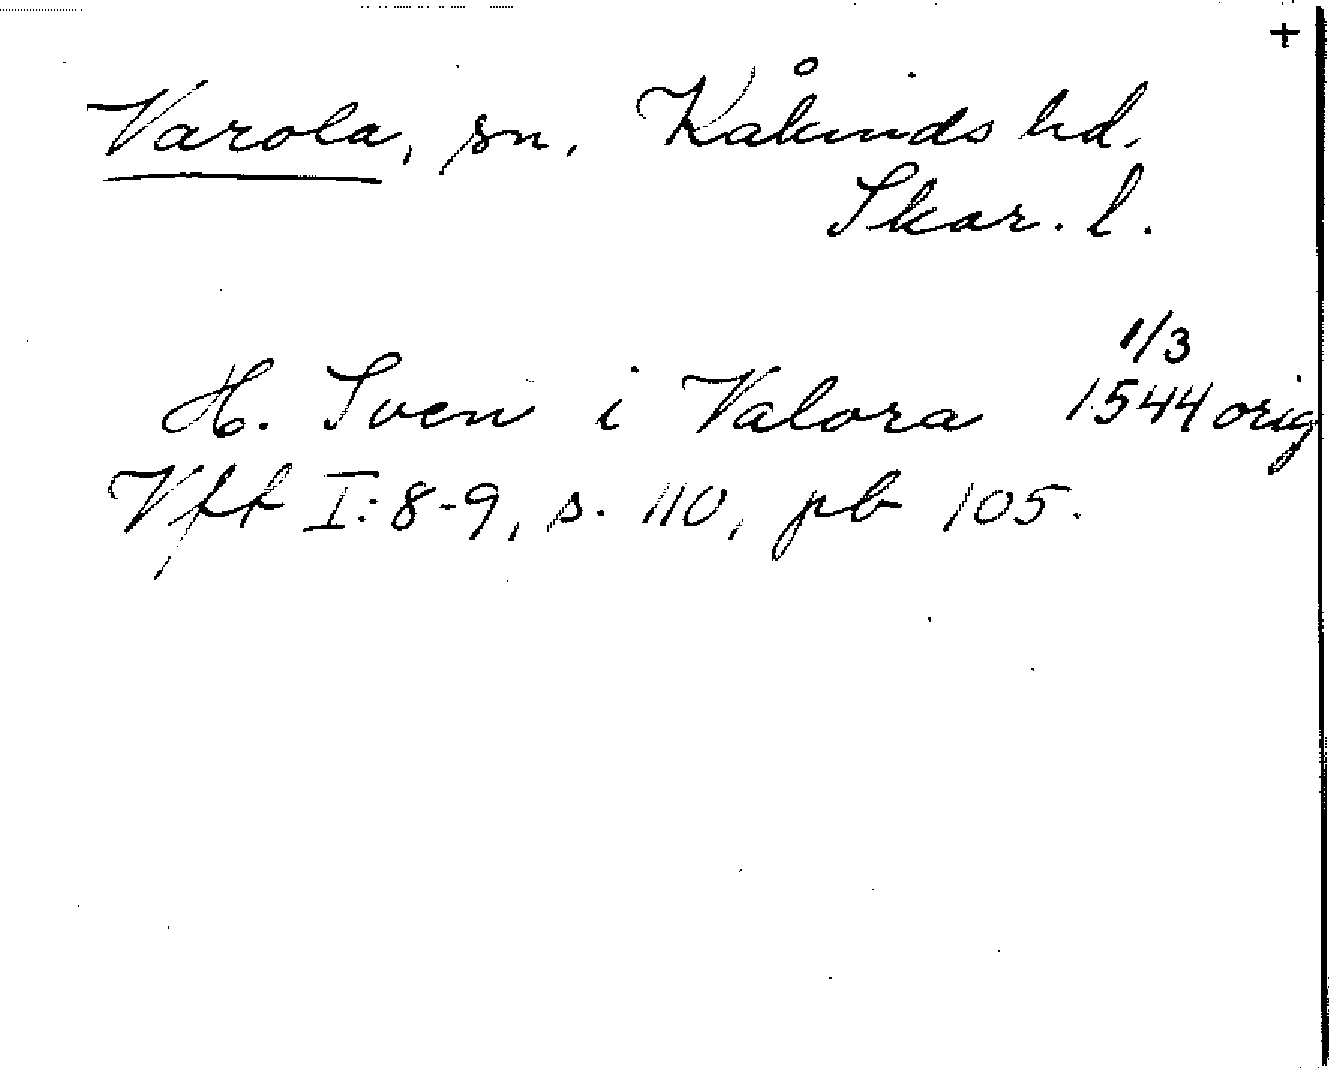 +
Varola, sn, Kåkinds hd.
Skar. l.
1/3
H. Sven i Valora 1544 orig
Vft I:8-9, s. 110, pb 105.